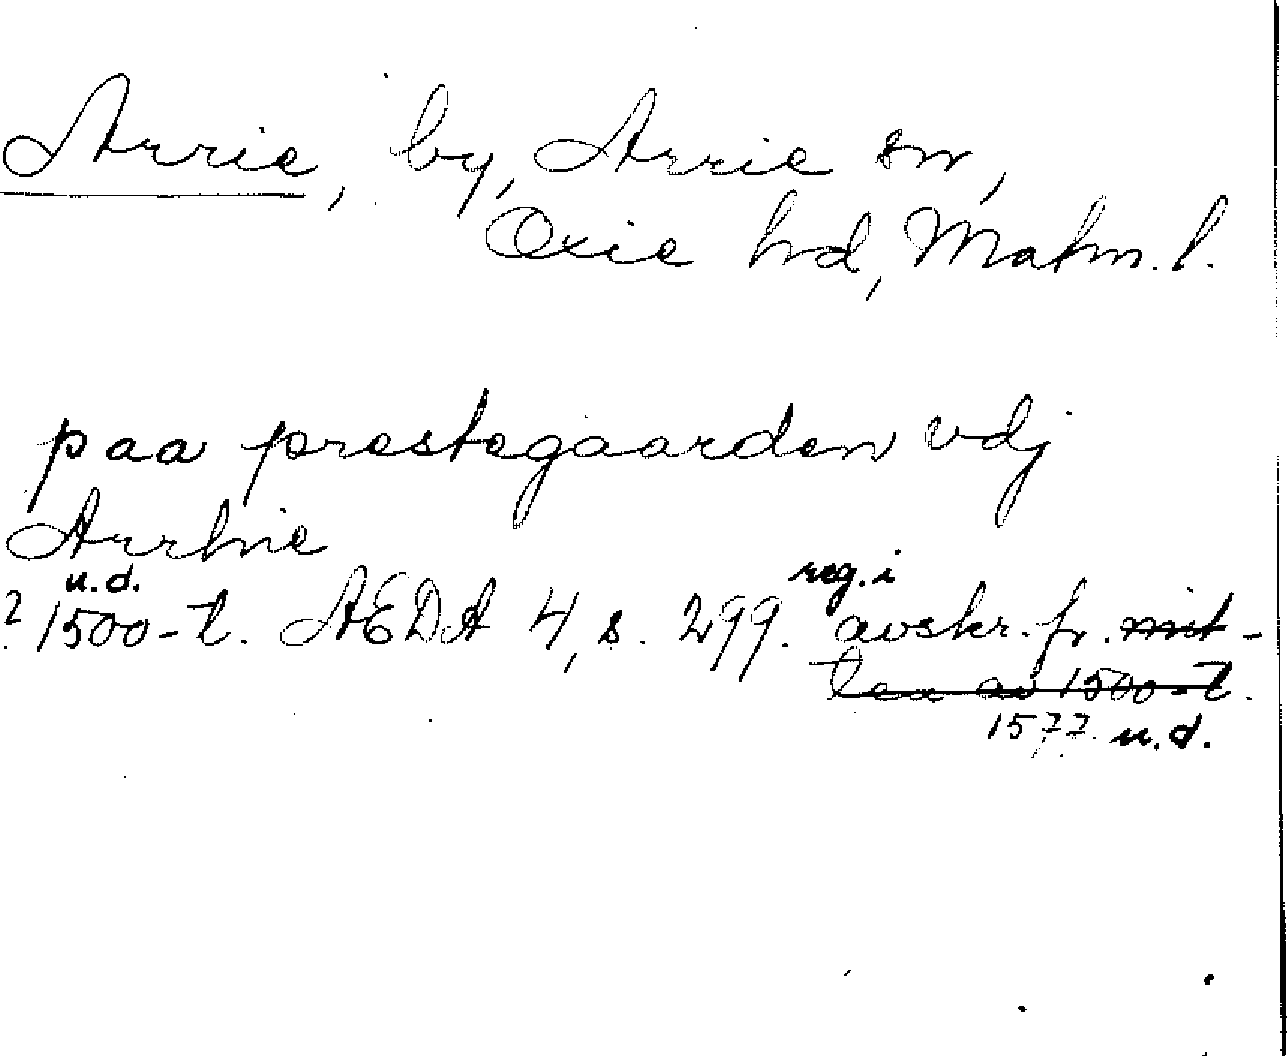 Arrie, by, Arrie sn,
Oxie hd, Malm. l.
paa prestegaarden vdj
Arrhie
u.d.
? 1500-t. AEDA 4, s. 299. reg. i avskr. fr. mit-
ten av 1500-t.
1577. u.d.